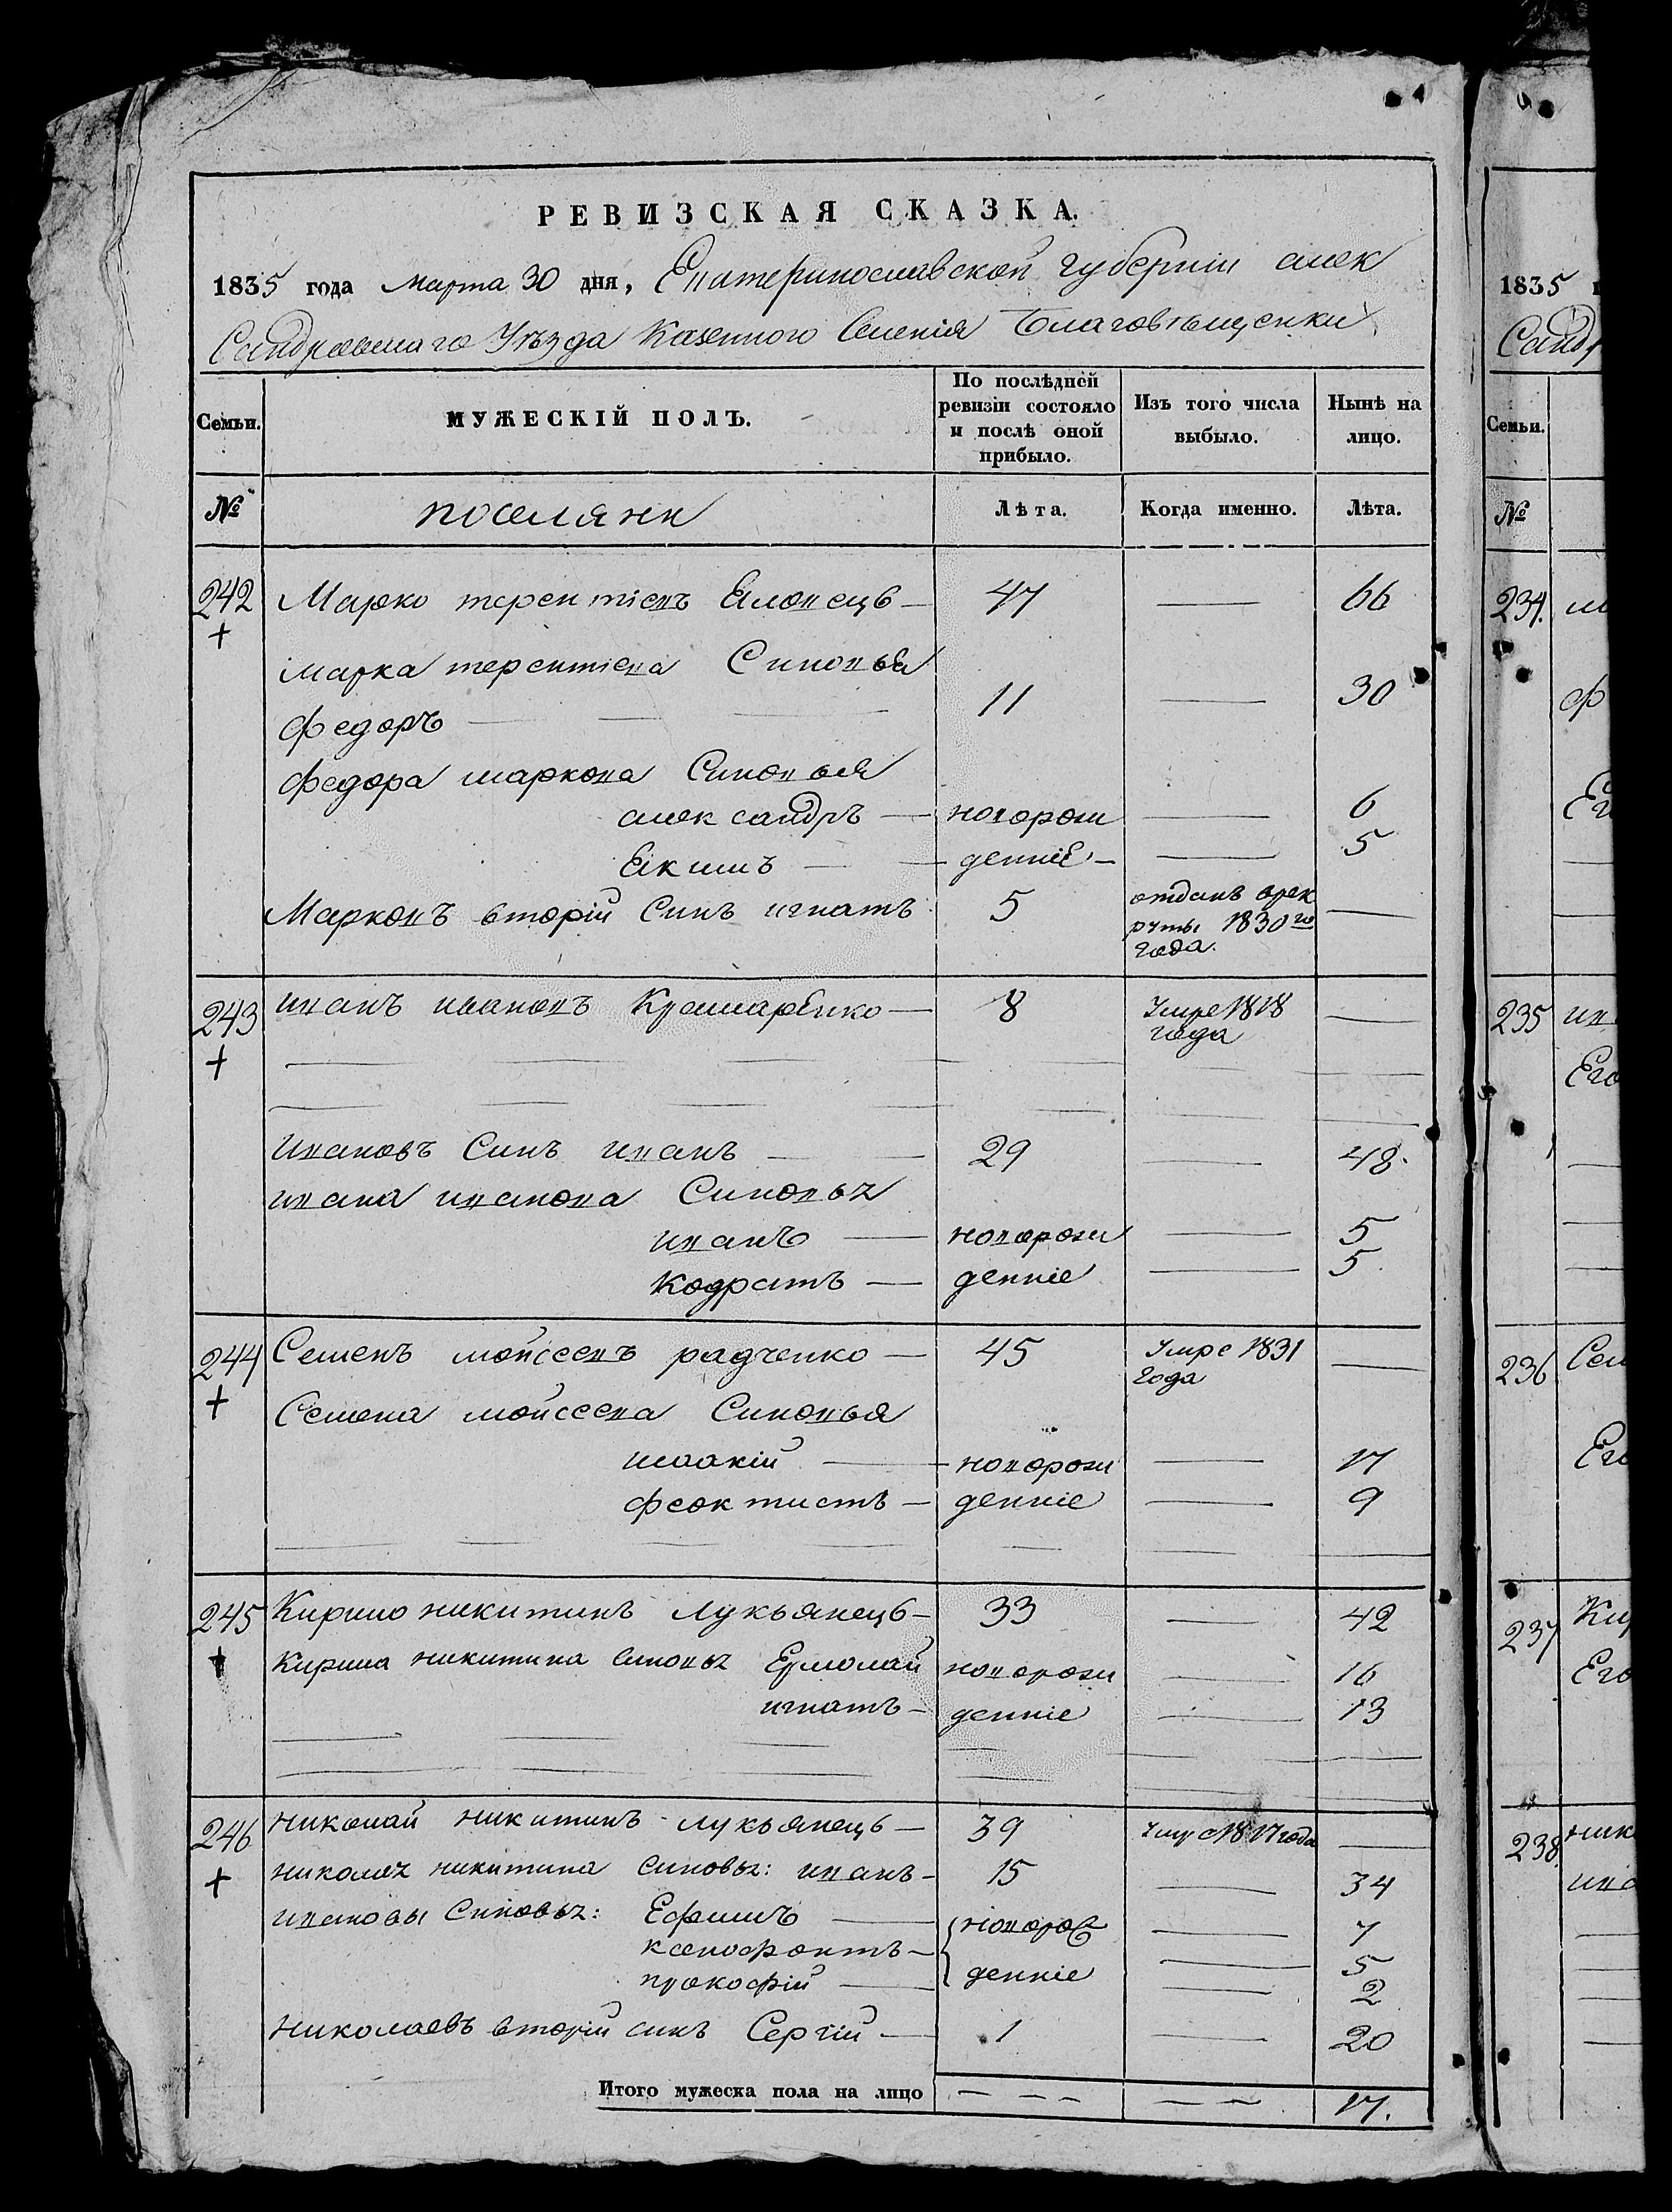 РЕВИЗСКАЯ СКАЗКА.
1835 года Марта 30 дня, Екатеринославской губернии алек
Сандровскаго Уѣзда Казенного Селенія Благовѣщенки
Семьи. МУЖЕСКІЙ ПОЛЪ. По послѣдней ревизіи состояло и послѣ оной прибыло. Изъ того числа выбыло. Нынѣ на лицо.
№ поселяни Лѣта. Когда именно. Лѣта.
242 Марко терентіевъ — 47 — 66
+
Марка терентіева Синовья
федоръ — 11 — 30
федора маркова Синовья
александръ — новорож — 6
Екимъ — денніе — — 5
Марковъ вторій Синъ игнатъ 5 отданъ врек —
руты 1830го
года.
243 иванъ ивановъ — 8 Умре 1818 —
+ года
Ивановъ Синъ иванъ — 29 — 48.
ивана иванова Синовья
иванъ — новорож — 5
Кодратъ — денніе — 5
244 Семенъ мойсеевъ радченко — 45 Умре 1831 —
+ года
Семена мойсеева Синовья
исаакій — новорож — 17
феоктистъ — денніе — 9
245 Кирило никитинъ Лукьянецъ — 33 — 42
+ Кирила никитина Синовья Ермолай новорож — 16
игнатъ — денніе — 13
246 Николай никитинъ лукьянецъ — 39 Умре 1817 года —
+ николая никитина Синовья: иванъ — 15 — 34
ивановы Синовья: Ефимъ — новорож — 7
ксенофонтъ — — 5
прокофій — денніе — 2
Николаевъ вторій синъ Сергій — 1 — 20
Итого мужеска пола на лицо — — — — — 17.
1835
Сандр
Семьи.
№
234.
Ф
Ег
235 ив
Его
236 Сем
Ег
237 Кир
Его
238 ник
ива